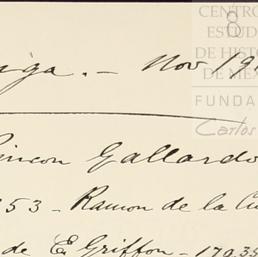 CENTRO
ESTUD
DE HISTO
DE MÉ
FUNDA
Carlos
8
Nov 19
Rincon Gallardo
53 - Ramon de la
de E. Griffon - 179.35